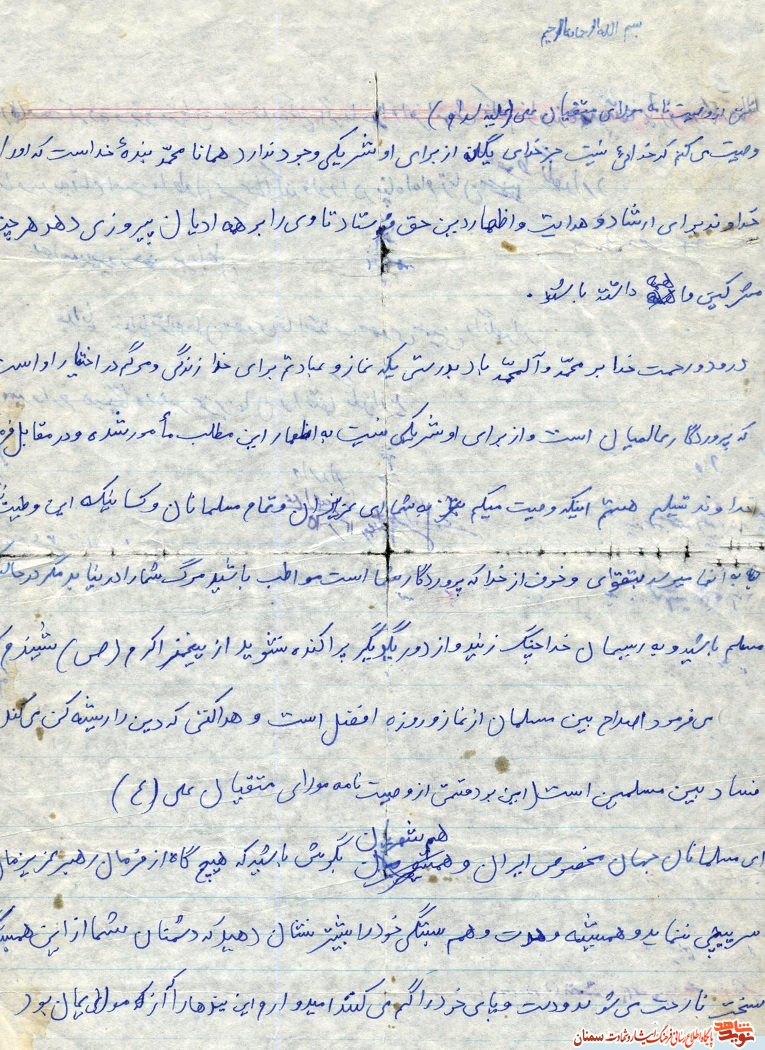 بسم الله الرحمن الرحیم
از وصیت نامه مولای متقیان علی (علیه السلام)
وصیت می کنم که خدائی نیست جز خدای یگانه از برای او شریکی وجود ندارد همانا محمّد بندهٔ خداست که او را
خداوند برای ارشاد و هدایت و اظهار دین حق فرستاد تا وی را بر همه ادیان پیروزی دهد هر چند
مشرکین داشته باشند.
درود و رحمت خدا بر محمّد و آل محمّد باد بدرستی که نماز و عبادتم برای خدا زندگی و مرگم در اختیار او است
که پروردگار عالمیان است و از برای او شریکی نیست به اظهار این مطلب مأمور شده و در مقابل
خداوند تسلیم هستم اینکه وصیت میکنم به شما ای عزیزان و تمام مسلمانان و کسانیکه این وصیت
به آنها میرسد بتقوای و خوف از خدا که پروردگار شما است مواظب باشید مرگ شما را در نیابد مگر در حالیکه
مسلم باشید و به ریسمان خدا چنگ زنید و از دور یکدیگر پراکنده نشوید از پیغمبر اکرم (ص) شنیدم
می فرمود اصلاح بین مسلمان از نماز و روزه افضل است و هلاکتی که دین را ریشه کن می کند
فساد بین مسلمین است (این بود قسمتی از وصیت نامه مولای متقیان علی (ع)
ای مسلمانان جهان مخصوص ایران و هم شهریان بگوش باشید که هیچ گاه از فرمان رهبر عزیزمان
سرپیچی ننماید و همیشه وحدت و هم بستگی خود را بیشتر نشان دهید که دشمنان شما از این
سخت ناراحت می شوند و دست و پای خود را گم می کنند امیدوارم این بود
نوید شاهد پایگاه اطلاع رسانی فرهنگ ایثار و شهادت سمنان